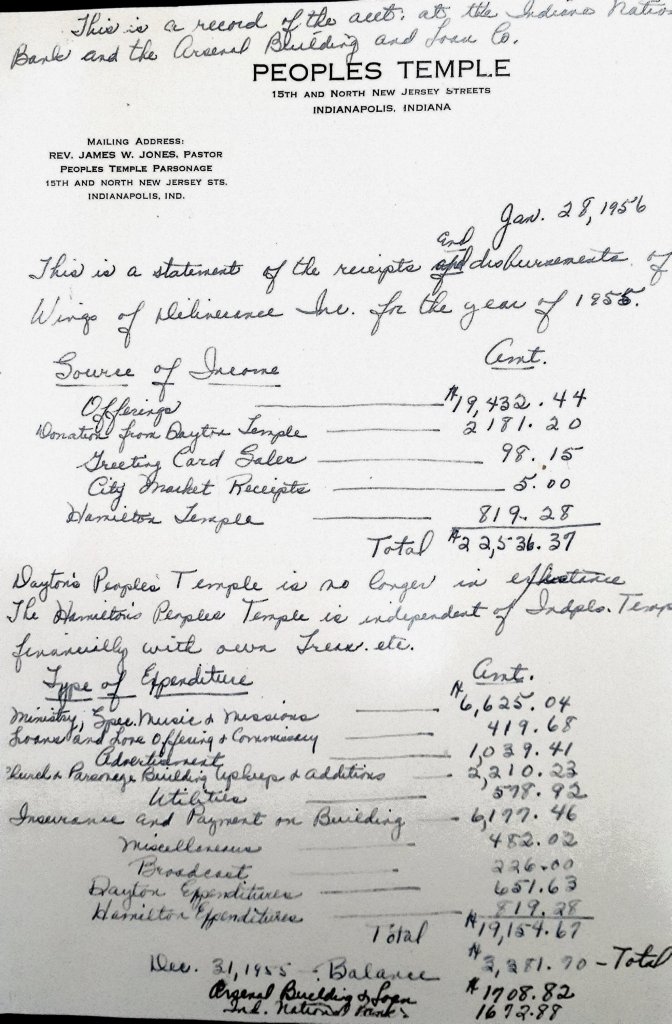 This is a record of the acct. at the Indiana Natio
Bank and the Arsenal Building and Loan Co.
PEOPLES TEMPLE
15TH AND NORTH NEW JERSEY STREETS
INDIANAPOLIS, INDIANA
MAILING ADDRESS:
REV. JAMES W. JONES, PASTOR
PEOPLES TEMPLE PARSONAGE
15TH AND NORTH NEW JERSEY STS.
INDIANAPOLIS, IND.
Jan. 28, 1956
and
This is a statement of the receipts disbursements of
Wings of Deliverance Inc. for the year of 1955.
Source of Income Amt.
Offerings $19,432.44
Donation from Dayton Temple 2181.20
Greeting Card Sales 98.15
City Market Receipts 5.00
Hamilton Temple 819.28
Total $22,536.37
Dayton's Peoples Temple is no longer in existance
The Hamilton's Peoples Temple is independent of Indpls. Temp
financially with own Treas. etc.
Type of Expenditure Amt.
Ministry, Spec. Music & Missions $6,625.04
Loans and Love Offering & Commissary 419.68
Advertisement 1,039.41
Church & Parsonage Building Upkeep & additions 2,210.23
Utilities 578.92
Insurance and Payment on Building 6,177.46
Miscellaneous 482.02
Broadcast 226.00
Dayton Expenditures 651.63
Hamilton Expenditures 819.28
Total $19,154.67
Dec. 31, 1955 - Balance $3,381.70 - Total
Arsenal Building & Loan $1708.82
Ind. National Bank 1672.88